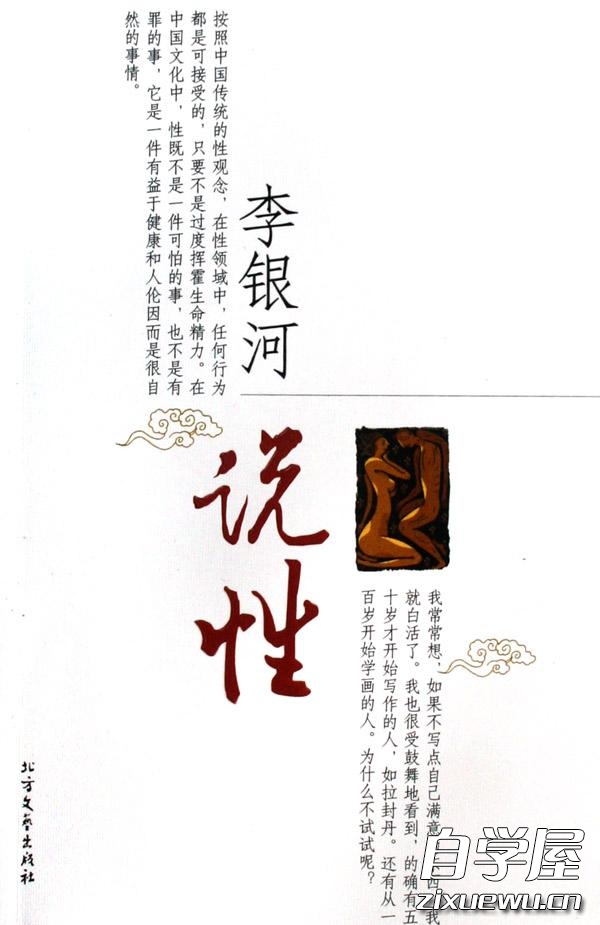 按照中国传统的性观念，在性领域中，任何行为
都是可接受的，只要不是过度挥霍生命精力。在
中国文化中，性既不是一件可怕的事，也不是有
罪的事，它是一件有益于健康和人伦因而是很自
然的事情。
李银河
说性
我常常想，如果不写点自己满意
西
我
就白活了。我也很受鼓舞地看到，的确有五
十岁才开始写作的人，如拉封丹。还有从一
百岁开始学画的人。为什么不试试呢？
北方文艺出版社
自学屋
zixuewu.cn